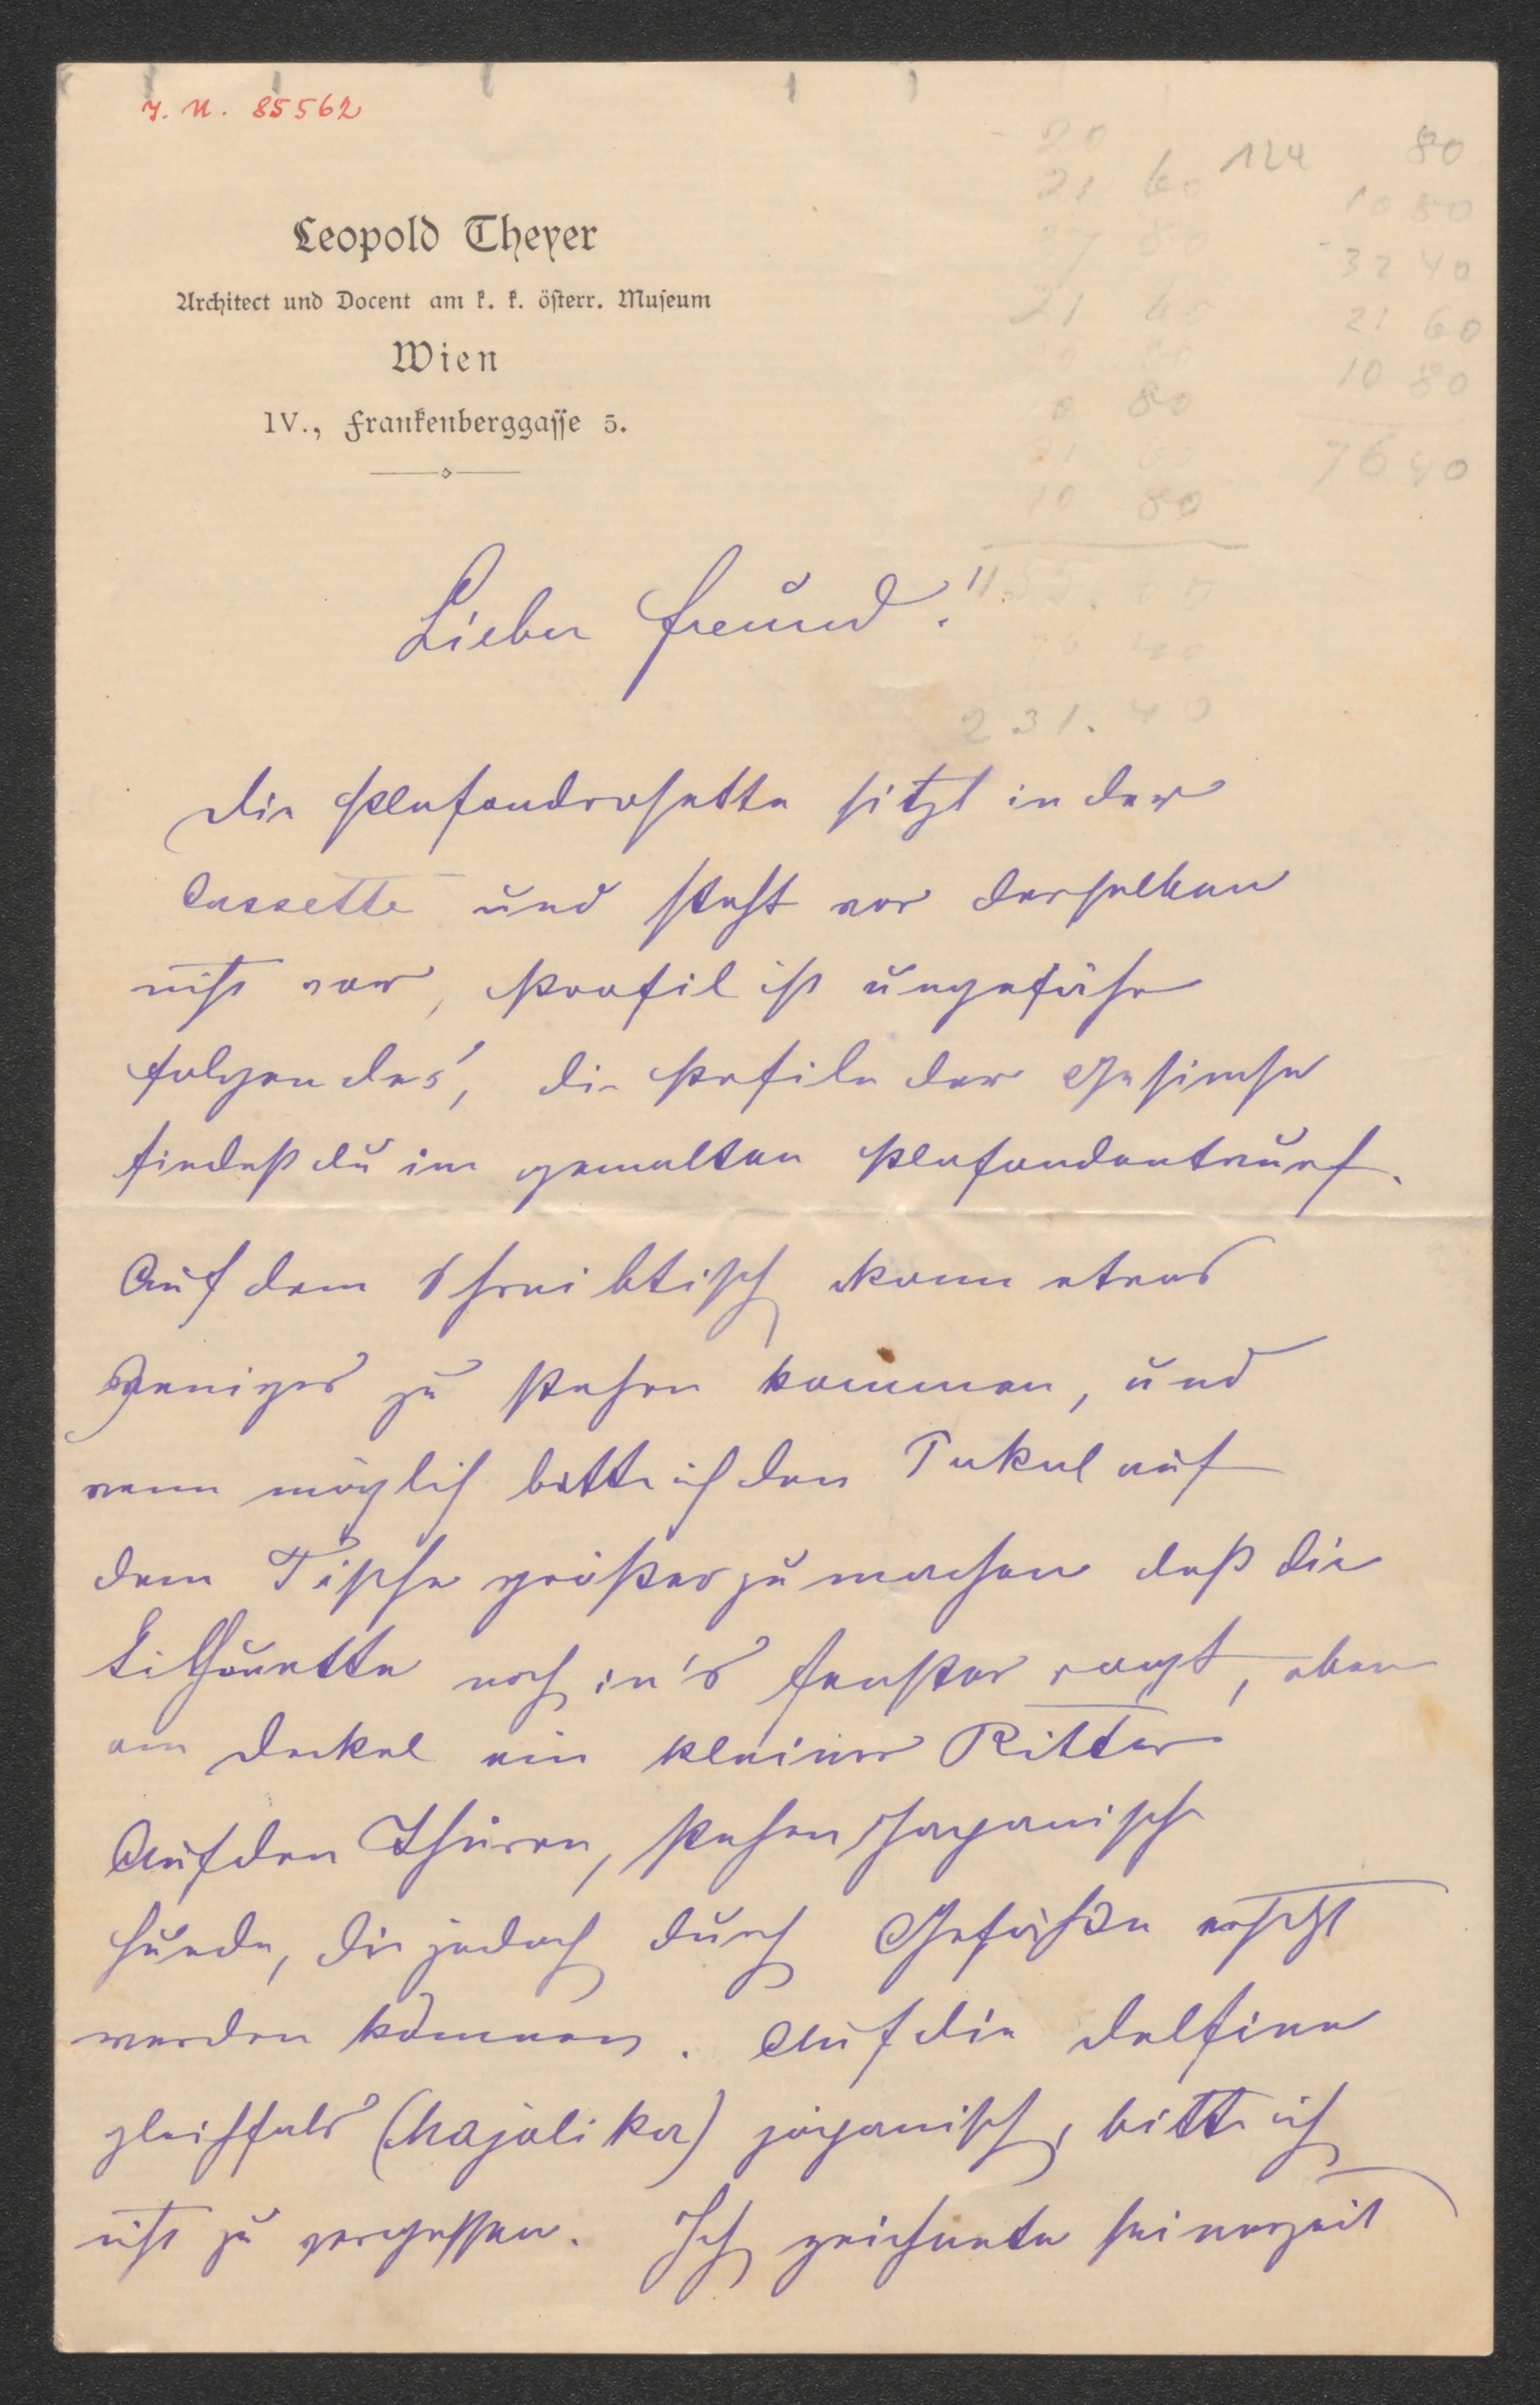 J. N. 85562
124 80
21 60
10 80
32 40
21 60
21 60
10 80
80
76 40
10 80
231.40
Leopold Theyer
Architect und Docent am k. k. österr. Museum
Wien
IV., Frankenberggasse 5.
Lieber Freund!!
Die Plafondrosette sitzt in der
Cassette und steht vor derselben
nicht vor, Profil ist ungefähr
folgendes, die Profile der Gesimse
findest du im gemalten Plafondentwurf.
Auf dem Schreibtisch kann etwas
weniges zu stehen kommen, und
wenn möglich bitte ich den Pokal auf
dem Tische größer zu machen daß die
Silhouette noch in's Fenster ragt, oben
am Deckel ein kleiner Ritter
Auf den Thüren, stehen Japanische
Hunde, die jedoch durch Gefäße ersetzt
werden können. Auf die Delfine
gleichfals (Majolika) japanisch, bitte ich
nicht zu vergessen. Ich zeichnete seinerzeit